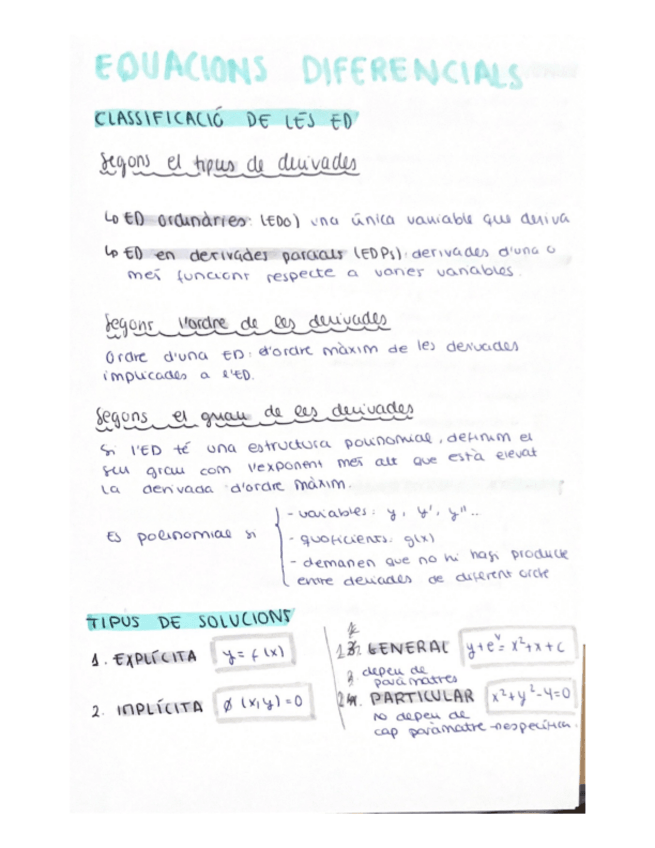 EQUACIONS DIFERENCIALS
CLASSIFICACIÓ DE LES ED
Segons el tipus de derivades
↳ ED ordinàries: (EDO) una única variable que deriva
↳ ED en derivades parcials (EDPs): derivades d'una o
més funcions respecte a varies variables.
Segons l'ordre de les derivades
Ordre d'una ED: d'ordre màxim de les derivades
implicades a l'ED.
Segons el grau de les derivades
Si l'ED té una estructura polinomial, definim el
seu grau com l'exponent més alt que està elevat
la derivada d'ordre màxim.
Es polinomial si
- variables: y, y', y''...
- quoficients: g(x)
- demanen que no hi hagi producte
entre derivades de diferent ordre
TIPUS DE SOLUCIONS
1. EXPLÍCITA y = f(x)
2. IMPLÍCITA ø (x,y) = 0
1. GENERAL y+e^y = x²+x+c
depèn de
paràmatres
2. PARTICULAR x²+y²-4=0
no depèn de
cap paràmatre → específica.